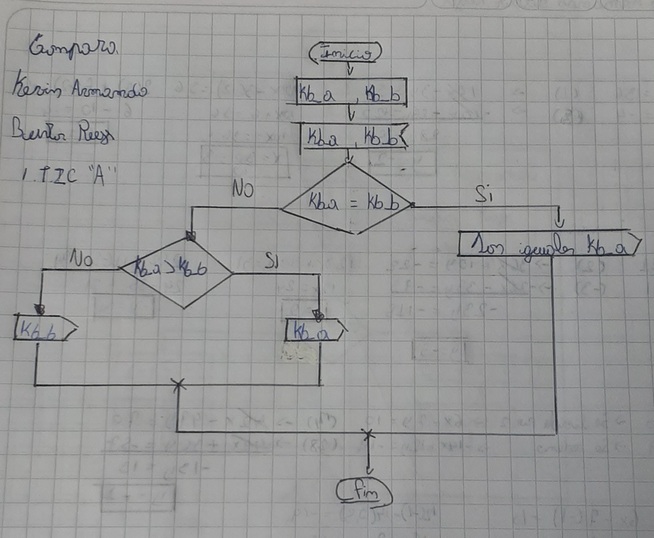 Compara.
Kevin Armando
1. TIC "A"
Inicio
kb_a , kb_b
kb_a , kb_b
kb_a = kb_b
No
Si
Son iguales kb_a
kb_a > kb_b
No
Si
kb_b
kb_a
fin